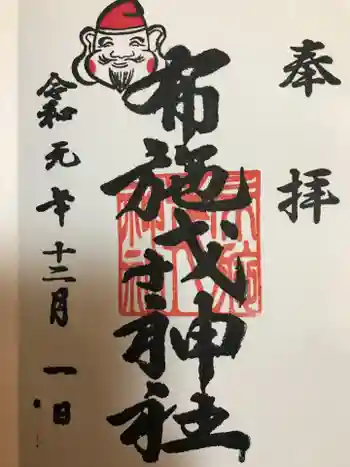 奉拝
布施戎神社
令和元年十二月一日